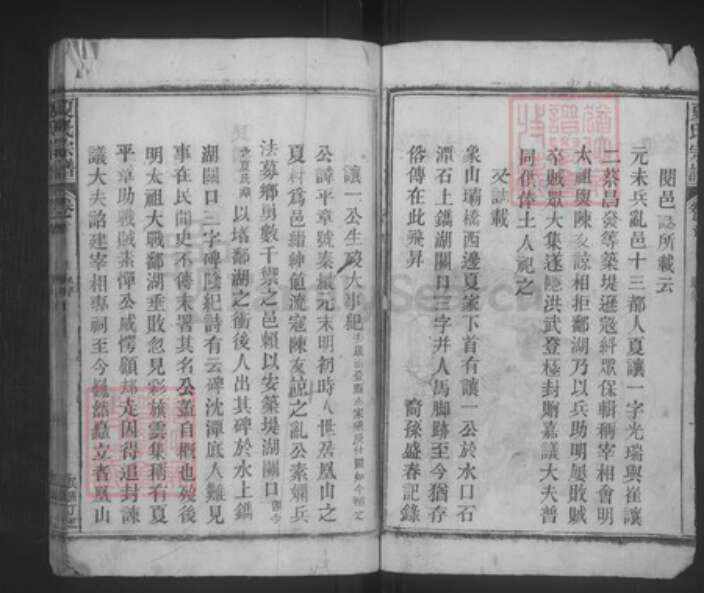 閱邑誌所載云
元末兵亂邑十三都人夏讓一字光瑞與崔讓
二蔡昌發等築堤遏寇糾眾保輯稱宰相會明
太祖與陳友諒相拒鄱湖乃以兵助明屢敗賊
卒賊眾大集遂隱洪武登極封贈嘉議大夫普
同供俸土人祀之
又誌載
象山壩橋西邊夏家下首有讓一公於水口石
潭石上鐫湖關口三字并人馬脚跡至今猶存
俗傳在此飛昇
裔孫盛春記錄
讓一公生殁大事犯
公諱平章號泰 元末明初時人世居凰山之
夏村爲邑縉紳 流寇陳友諒之亂公素嫻兵
法募鄉勇數千禦之邑賴以安築堤湖關口
以堵鄱湖之衝後人出其碑於水上鐫
湖關口三字碑陰紀詩有云碑沈潭底人難見
事在民間史不傳末署其名公蓋自概也厥後
明太祖大戰鄱湖垂敗忽見彩旌雲集稱有夏
平章助戰賊素憚公威愕顧却走因得追封諫
議大夫詔建宰相專祠至今巍然矗立者凰山